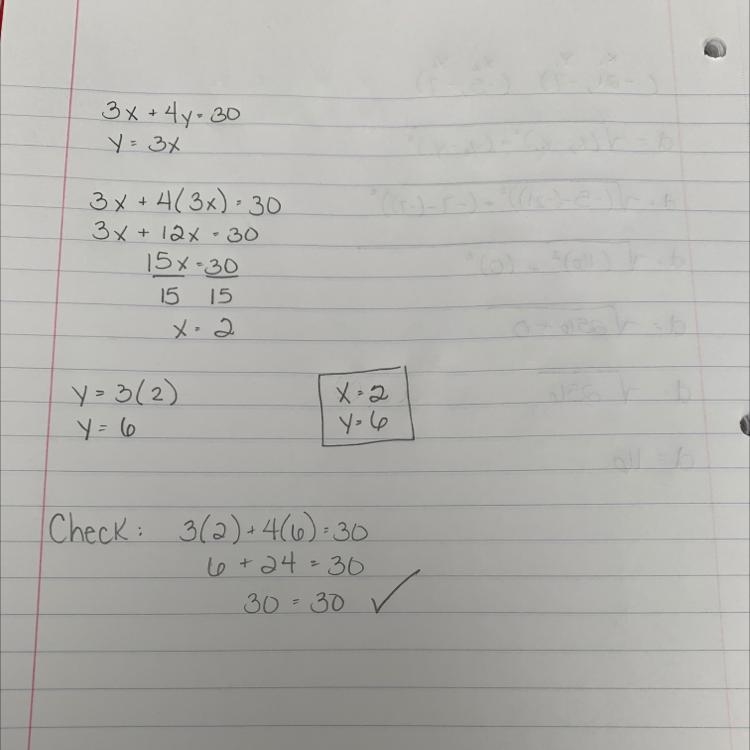 3x + 4y = 30
y = 3x
3x + 4(3x) = 30
3x + 12x = 30
15x = 30
15 15
x = 2
y = 3(2)
y = 6
x = 2
y = 6
Check: 3(2) + 4(6) = 30
6 + 24 = 30
30 = 30 ✓